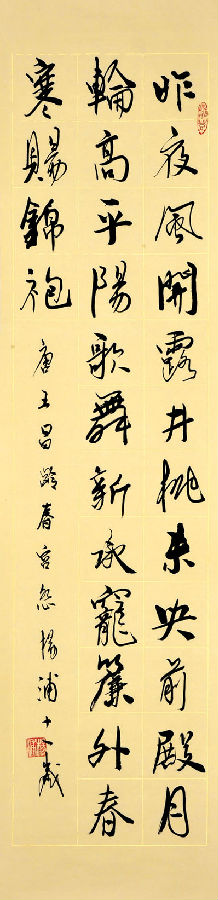 昨夜風開露井桃未央前殿月
輪高平陽歌舞新承寵簾外春
寒賜錦袍
唐王昌齡春宮怨楊浦十八歲